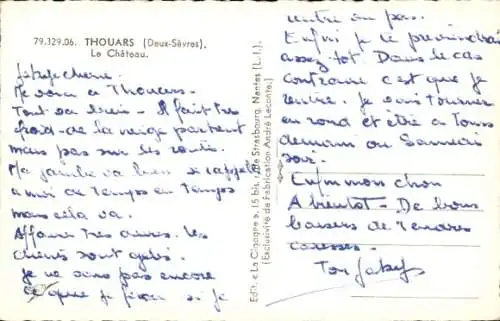 79.329.06. THOUARS (Deux-Sèvres).
Le Château.
cherie.
Je suis a Thouars.
Tout va bien. Il fait très
froid. de la neige partout
mais pas sur les routes.
Ma jambe va bien se rappelle
a moi de temps en temps
mais cela va.
Affaires très dures. les
clients sont gelés.
Je ne sais pas encore
ce que je ferai si je
Edit. « La Cigogne », 15 bis, rue Strasbourg, Nantes (L.-I.).
(Exclusivité de Fabrication André Leconte.)
rentre ou pas.
Enfin je te préviendrai
assez tôt. Dans le cas
contraire c'est que je
rentre. Je vais tourner
en rond et être a Tours
demain ou Samedi
soir.
Enfin mon chou
A bientôt - De bons
baisers de tendres
caresses.
Ton